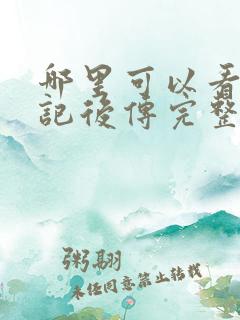 哪里可以看
記後傳完整
粥翮
未经同意禁止转载